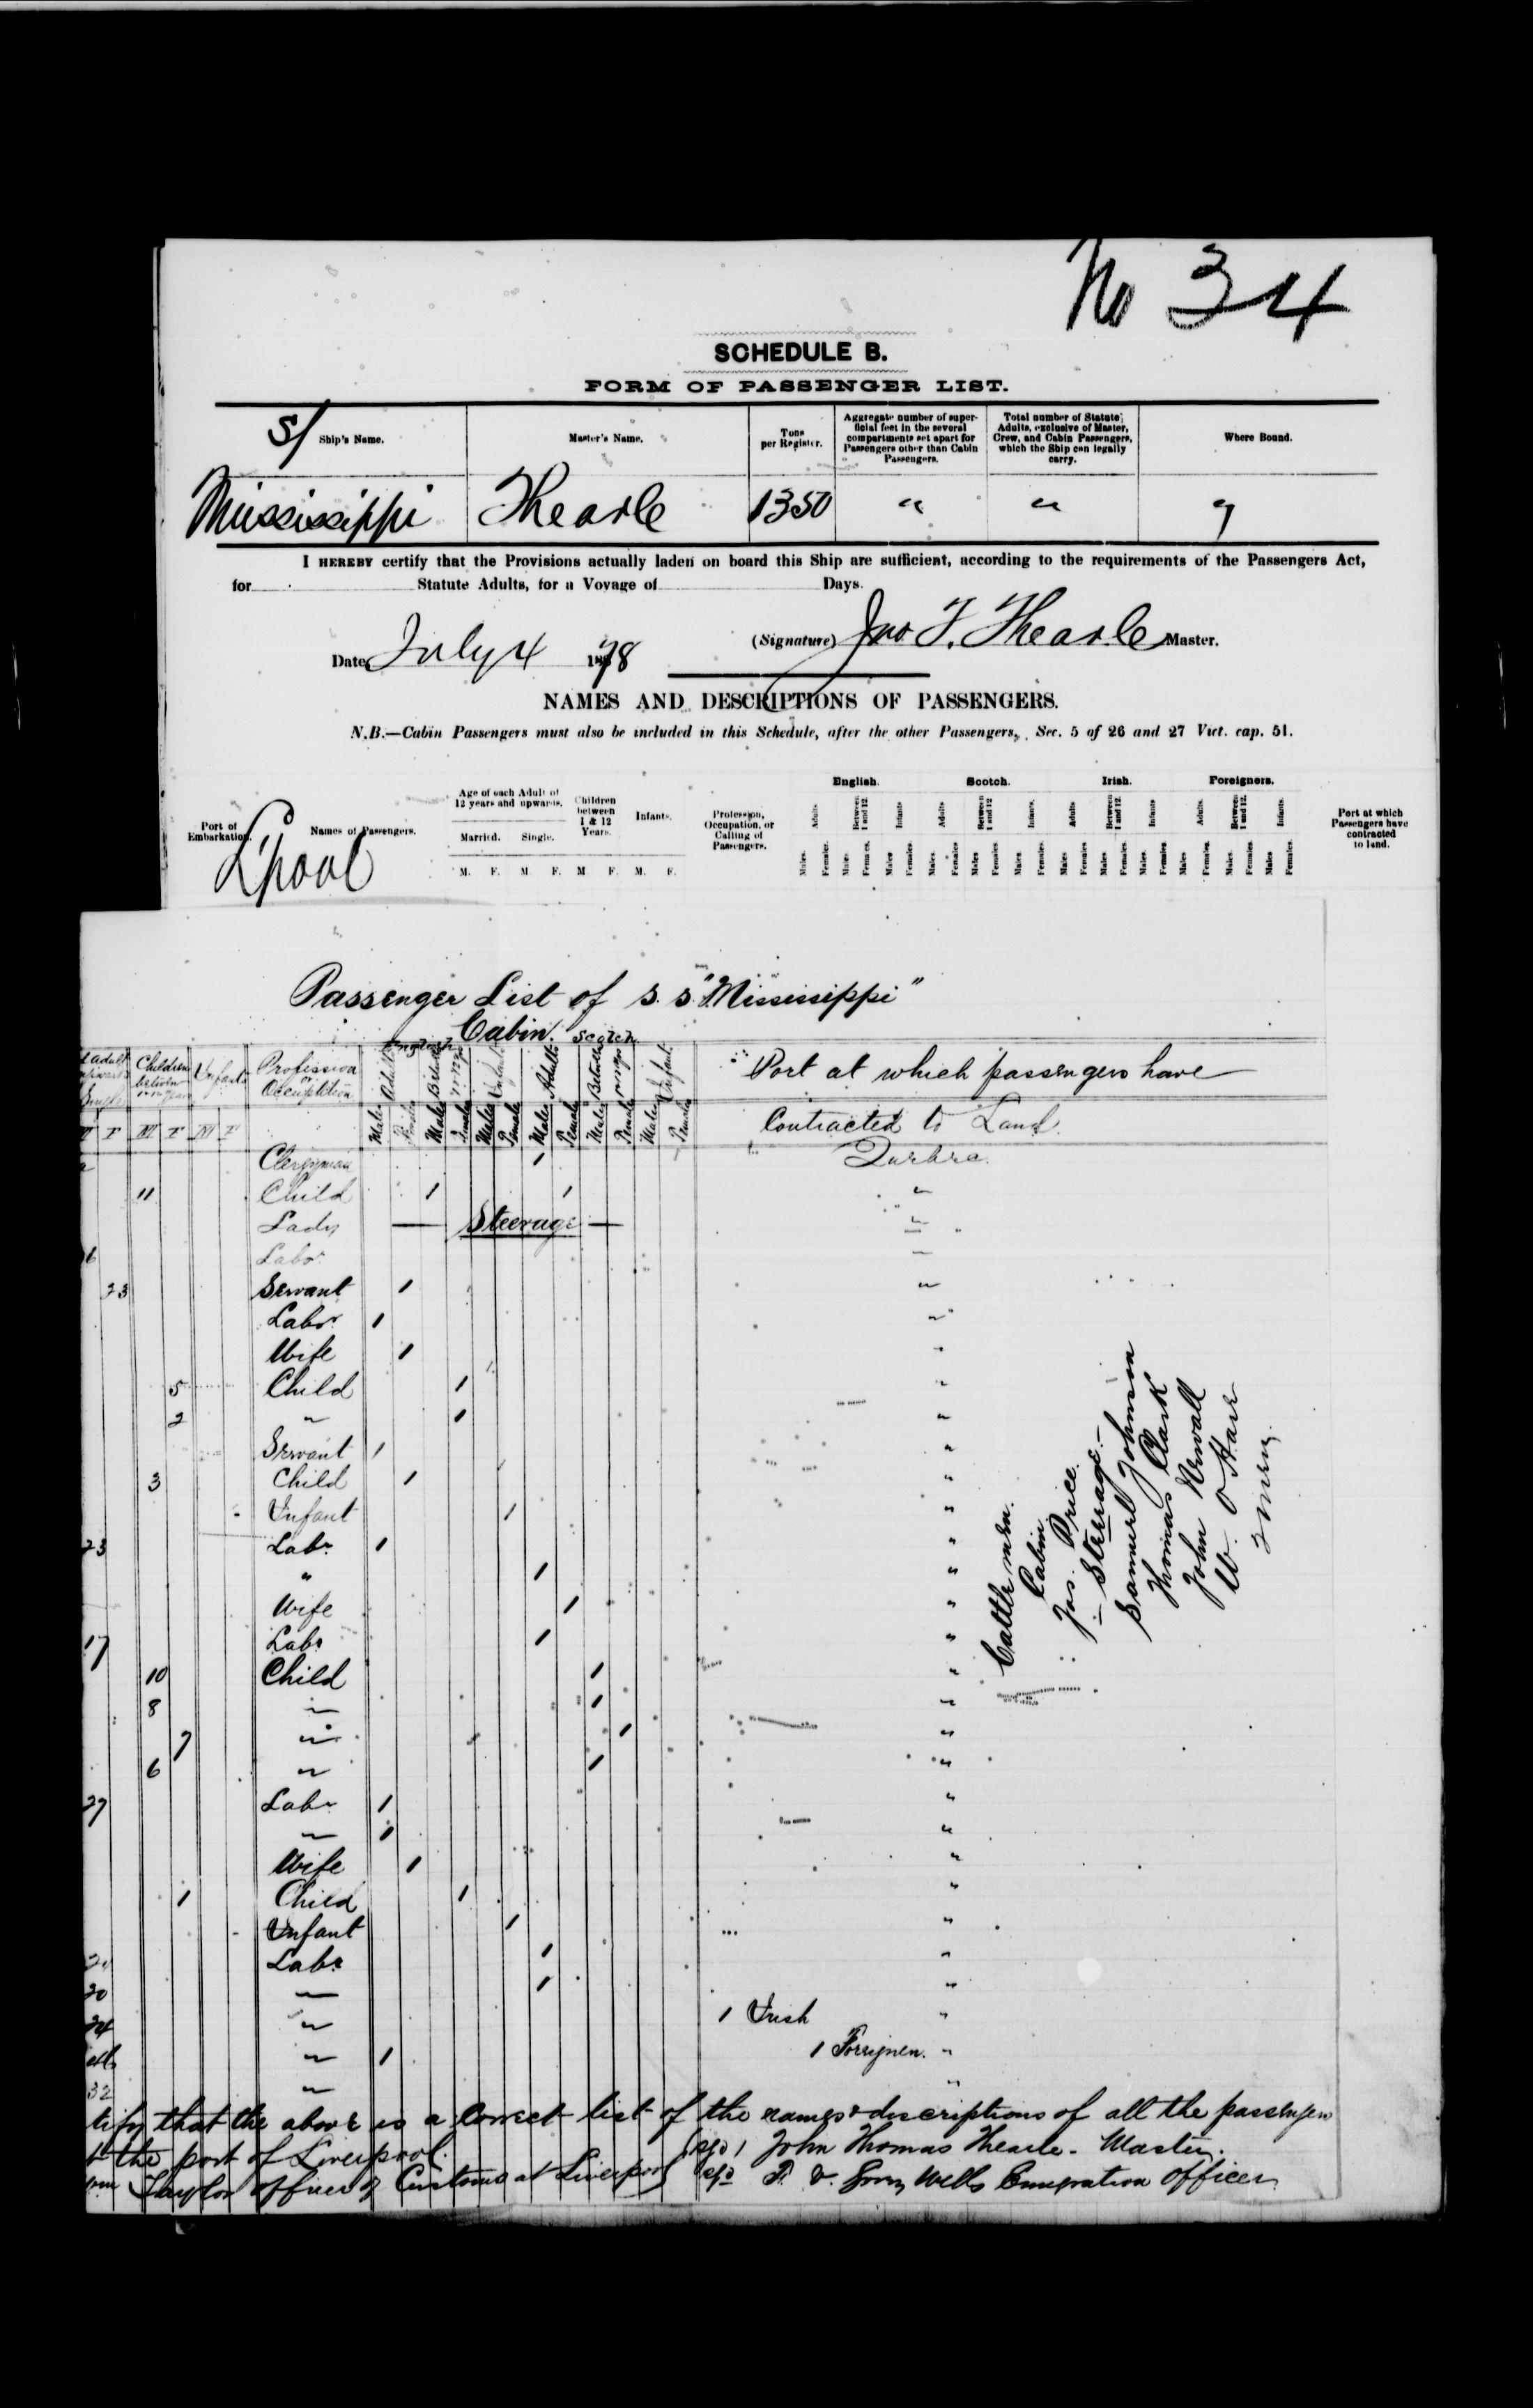 No 34
SCHEDULE B.
FORM OF PASSENGER LIST.
S/ Ship's Name. Master's Name. Tons per Register. Aggregate number of superficial feet in the several compartments set apart for Passengers other than Cabin Passengers. Total number of Statute Adults, exclusive of Master, Crew, and Cabin Passengers, which the Ship can legally carry. Where Bound.
Mississippi Thearle 1350 " "
I HEREBY certify that the Provisions actually laden on board this Ship are sufficient, according to the requirements of the Passengers Act,
for Statute Adults, for a Voyage of Days.
(Signature) Jno T. Thearle Master.
Date, July 4 1878
NAMES AND DESCRIPTIONS OF PASSENGERS.
N.B.—Cabin Passengers must also be included in this Schedule, after the other Passengers, Sec. 5 of 26 and 27 Vict. cap. 51.
Port of Embarkation. Names of Passengers. Age of each Adult of 12 years and upwards. Children between 1 & 12 Years. Infants. Profession, Occupation, or Calling of Passengers. English. Scotch. Irish. Foreigners. Port at which Passengers have contracted to land.
Married. Single. Adults. Between 1 and 12. Infants Adults Between 1 and 12 Infants. Adults Between 1 and 12. Infants Adults. Between 1 and 12. Infants.
M. F. M. F. M F. M. F. Males. Females. Males. Females. Males Females. Males Females Males Females Males Females. Males Females Males Females. Males. Females Males Females. Males. Females. Males Females.
L'pool
Passenger List of S.S. "Mississippi"
Cabin.
English Scotch
Children between Infants Profession or Occupation Adults Infant Adults Infant
Port at which passengers have
Contracted to Land.
F M F M F Male Female Male Female Male Female Male Female Male Female Male Female
Clergyman 1 Quebec.
11 Child 1 1 "
Lady — Steerage — "
6 Labr "
23 Servant 1 "
Labr 1 "
Wife 1 "
5 Child 1 "
2 " 1 "
Servant 1 "
3 Child 1 "
- Infant 1 "
23 Labr 1 "
" 1 "
Wife 1 "
17 Labr 1 "
10 Child 1 "
8 " 1 "
7 " 1 "
6 " 1 "
27 Labr 1 "
" 1 "
Wife 1 "
1 Child 1 "
- Infant 1 "
Labr 1 "
20 " 1 "
24 " 1 Irish "
" 1 1 Foreigner. "
32 " "
Cattle men.
Cabin
Jas. Price.
— Steerage. —
Samuel Johnson
Thomas Clark
John Newall
W. O Hare
2 men.
tify that the above is a correct list of the names & descriptions of all the passengers
the port of Liverpool. (sgd) John Thomas Thearle - Master.
Taylor officer of Customs at Liverpool sgd Wells Emigration Officer